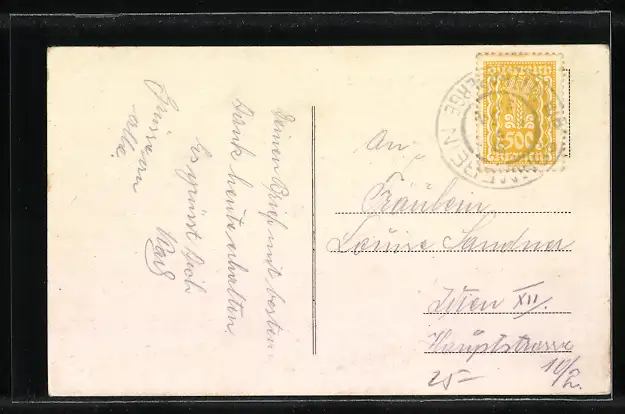 Deinen Brief mit bestem
Dank heute erhalten.
Es grüsst Dich
Karl
Grüsse an
alle.
An
Fräulein
Louise Sandner
Wien XII.
Hauptstrasse
25-
Österreich
500